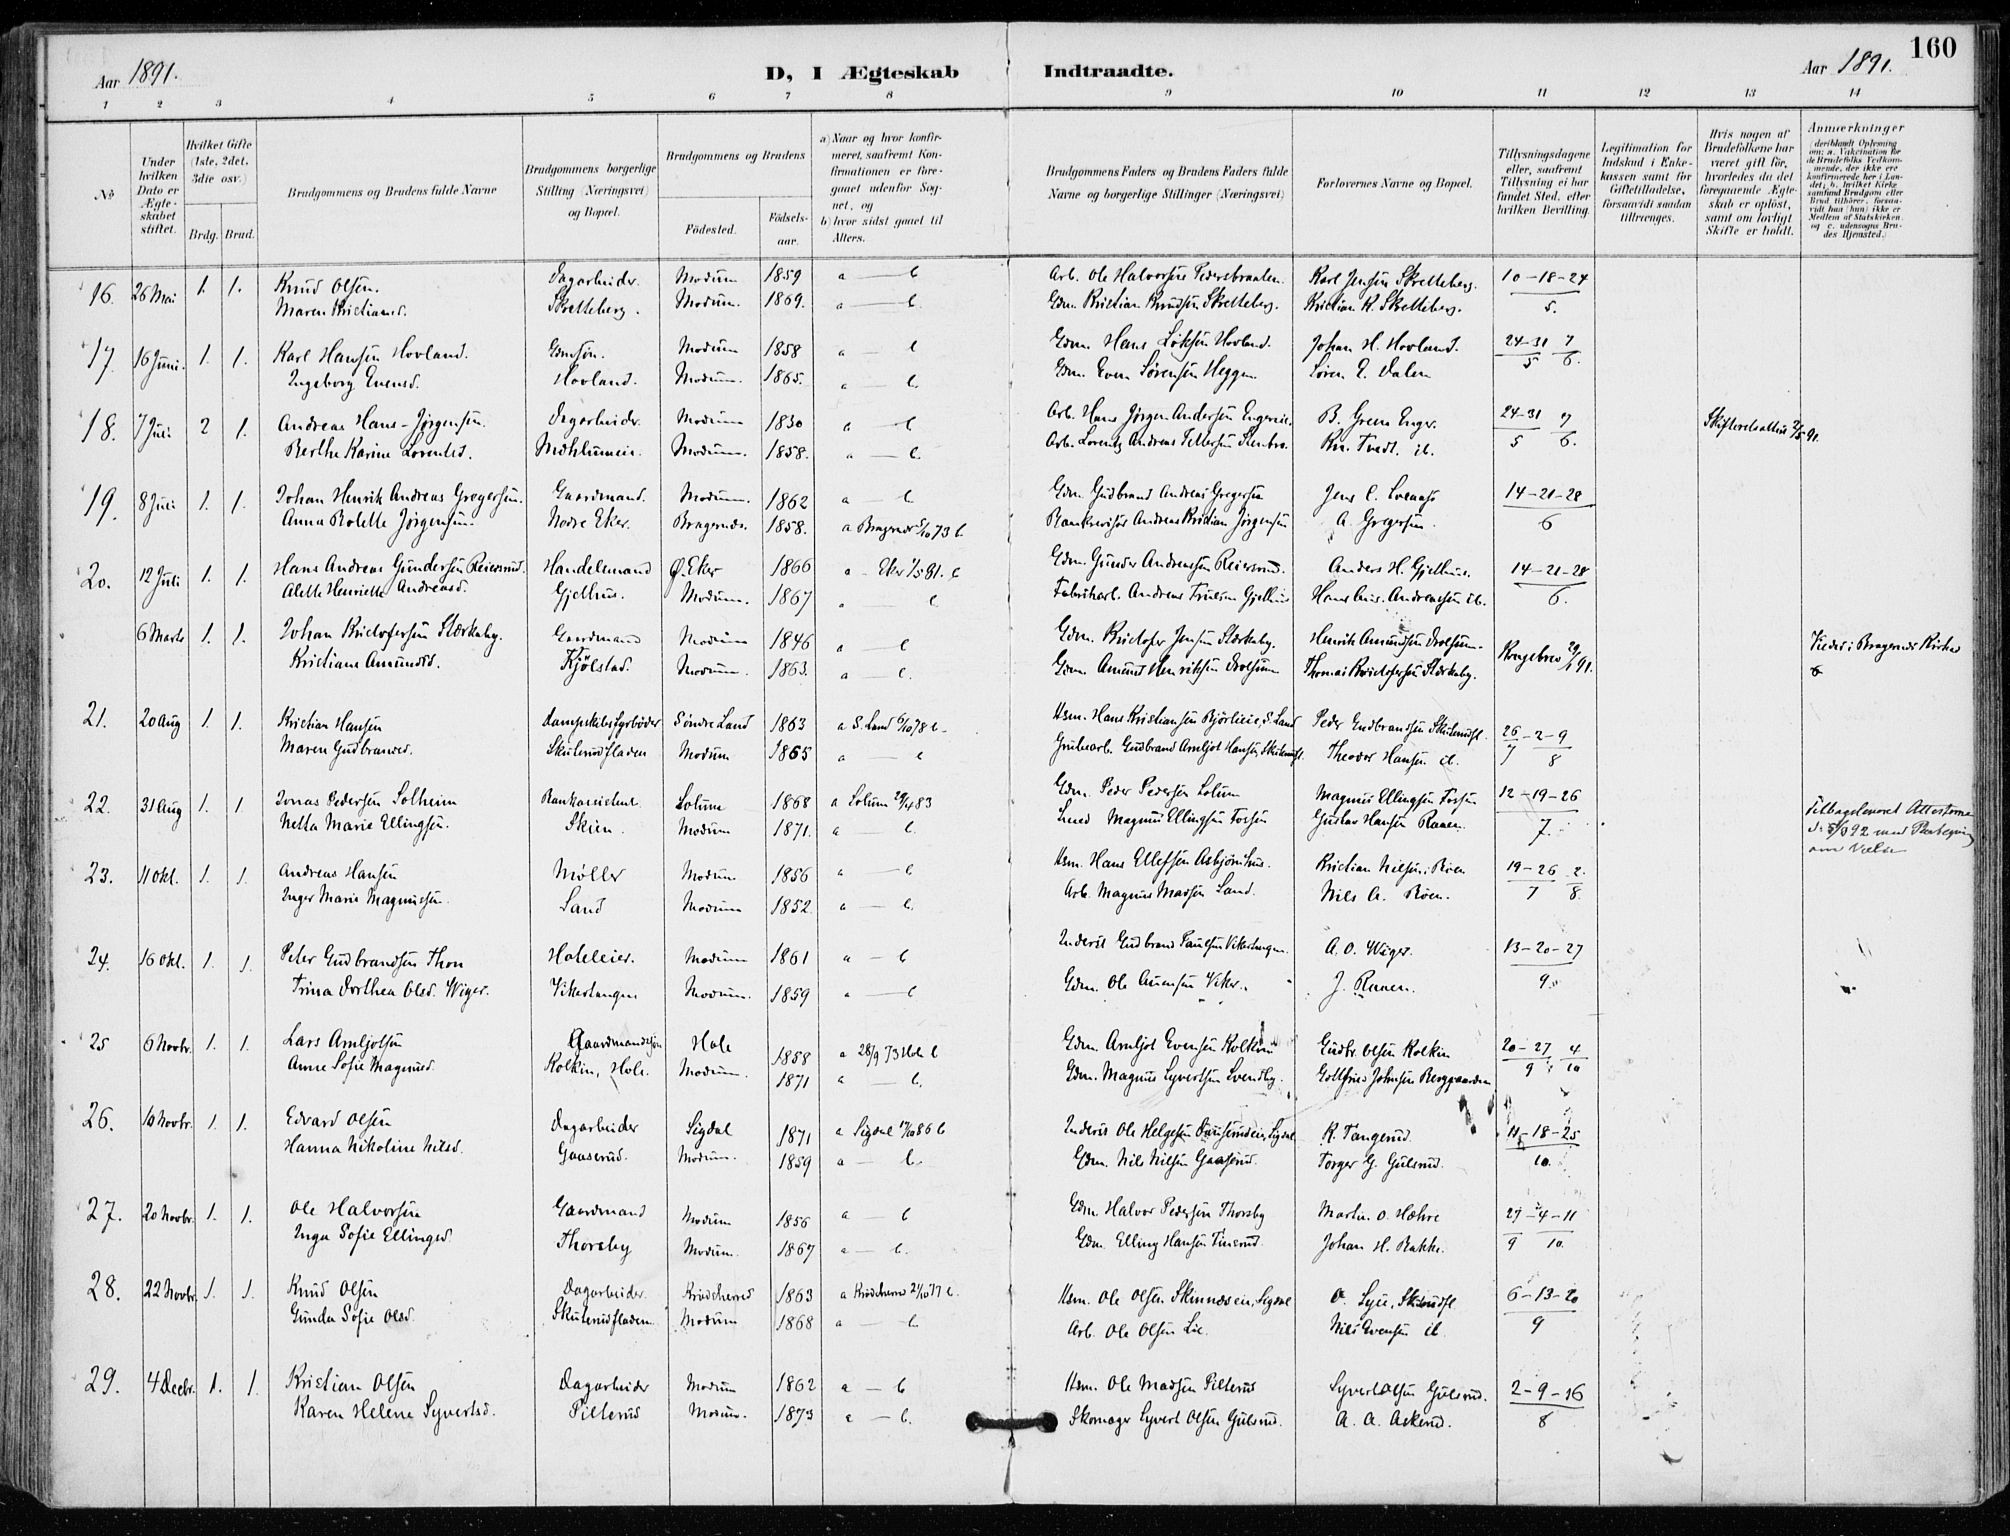 160
Aar 1891.
D, I Ægteskab Indtraadte.
Aar 1891.
1 2 3 4 5 6 7 8 9 10 11 12 13 14
No
Under hvilken Dato er Ægteskabet stiftet.
Hvilket Gifte (1ste, 2det, 3die osv.)
Brdg. Brud.
Brudgommens og Brudens fulde Navne
Brudgommens borgerlige Stilling (Næringsvei) og Bopæl.
Brudgommens og Brudens
Fødested. Fødselsaar.
a) Naar og hvor konfirmeret, saafremt Konfirmationen er foregaaet udenfor Sognet, og
b) hvor sidst gaaet til Alters.
Brudgommens Faders og Brudens Faders fulde Navne og borgerlige Stillinger (Næringsvei)
Forlovernes Navne og Bopæl.
Tillysningsdagene eller, saafremt Tillysning ei har fundet Sted, efter hvilken Bevilling.
Legitimation for Indskud i Enkekassen samt for Giftetilladelse, forsaavidt saadan tiltrænges.
Hvis nogen af Brudefolkene har været gift før, hvorledes da det foregaaende Ægteskab er opløst, samt om lovligt Skifte er holdt.
Anmærkninger (deriblandt Oplysning om: a. Vakcination for de Brudefolks Vedkommende, der ikke ere konfirmerede her i Landet; b. hvilket Kirkesamfund Brudgom eller Brud tilhører, forsaavidt han (hun) ikke er Medlem af Statskirken, og c. udensogns Brudes Hjemsted.)
16. 26 Mai 1. 1. Knud Olsen. Dagarbeider Modum 1859 a — b Arb. Ole Halvorsen Pedersbraaten Karl Jensen Skretteberg. 10-18-24
Maren Kristiansd. Skretteberg. Modum. 1869. a — b. Gdm. Kristian Knudsen Skretteberg. Kristian K. Skretteberg. 5.
17. 16 Juni. 1. 1. Karl Hansen Hovland. Gdmsøn. Modum 1858 a — b Gdm. Hans Hovland. Johan H. Hovland. 24-31 7
Ingeborg Evensd. Hovland. Modum. 1865. a — b. Gdm. Even Sørensen Heggen Søren E. Dalen 5 6.
18. 7 Juli 2 1. Andreas Hans-Jørgensen. Dagarbeider. Modum 1830 a — b Arb. Hans Jørgen Andersen B. Green Enger. 24-31 7 Skifteretsattest 2/5 91.
Berthe Karine Lorentsd. Modum. 1858. a — b. Arb. Lorentz Andreas Kr. Tvedt. ib. 5 6.
19. 8 Juli 1. 1. Johan Henrik Andreas Gregersen. Gaardmand. Modum. 1862 a — b. Gdm. Gudbrand Andreas Gregersen Jens C. 14-21-28
Anna Bolette Jørgensen. Nedre Eker. Bragernæs. 1858. a Bragernæs 5/10 73 b. Andreas Kristian Jørgensen A. Gregersen. 6
20. 12 Juli 1. 1. Hans Andreas Gundersen Reiersrud. Handelsmand Ø. Eker 1866 a Eker 81. b Gdm. Gunder Andreassen Reiersrud. Anders H. Gjethus. 14-21-28
Alette Henriette Andreasd. Gjethus. Modum. 1867 a — b. Fabrikarb. Andreas Gjethus Hans Chr. Andreassen ib. 6.
6 Marts 1. 1. Johan Kristofersen Stærkeby. Gaardmand Modum 1846 a — b Gdm. Kristofer Jensen Stærkeby. Henrik Amundsen Drolsum. Kongebrev 29/1 91. Viede i Bragernæs Kirke
Kristiane Amundsd. Kjølstad. Modum. 1863. a — b. Gdm. Amund Henriksen Drolsum Thomas Kristofersen Stærkeby.
21. 20 Aug 1. 1. Kristian Hansen Dampskibsfyrbøder Søndre Land 1863 a S. Land 6/10 78 b. Hsm. Hans Kristiansen S. Land Peder Gudbrandsen 26-2-9
Maren Gudbrandsd. Skuterudfladen Modum 1865 a — b Grubearb. Gudbrand Arnljot Hansen Theodor Hansen ib. 7 8
22. 31 Aug 1. 1 Jonas Pedersen Solheim Bankassistent Solum 1868 a Solum 29/4 83 Gdm. Peder Pedersen Solum Magnus Ellingsen 12-19-26 Tilbageleveret Attesterne
Netta Marie Ellingsen. Skien. Modum 1871. a — b. Smed Magnus Ellingsen Gustav Hansen Raaen. 7. 92 med Paategning
23. 11 Okt. 1. 1. Andreas Hansen Møller Modum 1856 a — b Hsm. Hans Ellefsen Kristian Nilsen Røen 19-26 2.
Inger Marie Magnussen. Sand Modum 1852. a — b. Arb. Magnus Madsen Sand. Nils A. Røen. 7 8.
24. 16 Okt. 1. 1. Peter Gudbrandsen Thon Hoteleier. Modum 1861 a — b Inderst Gudbrand Paulsen Vikertangen A. O. Wiger. 13-20-27
Trina Dorthea Olsd. Wiger. Vikertangen Modum. 1859 a — b Gdm. Ole Viker. J. Raaen. 9.
25 6 Novbr. 1. 1. Lars Arnljotsen Gaardmandssøn Hole 1858 a 28/9 73 Hole b Gdm. Arnljot Evensen Gudbr. Olsen Rolkin 20-27 4
Anne Sofie Magnusd. Rolkin, Hole. Modum. 1871 a — b. Gdm. Magnus Syvertsen Svendby. Gottfried Johnsen Berggaarden 9 10
26. 10 Novbr. 1. 1. Edvard Olsen Dagarbeider Sigdal 1871 a Sigdal 86 b Inderst Ole Helgesen Sigdal K. Tangerud. 11-18-25
Hanna Nikoline Nilsd. Gaaserud. Modum. 1859 a — b. Gdm. Nils Nilsen Gaaserud. Torger G. Gulsrud. 10.
27. 20 Novbr. 1. 1. Ole Halvorsen Gaardmand Modum 1856 a — b Gdm. Halvor Pedersen Thorsby Martin O. Hæhre 27-4-11
Inga Sofie Ellingsd. Thorsby Modum. 1867 a — b. Gdm. Elling Hansen Johan H. Bakke. 9 10.
28. 22 Novbr. 1. 1. Knud Olsen Dagarbeider. Krødsherred 1863 a Krødsherred 77 b. Hsm. Ole Olsen Sigdal O. 6-13-20
Gunda Sofie Olsd. Skuterudfladen Modum 1868 a — b. Arb. Ole Olsen Lie. Nils Evensen ib 9
29. 4 Decbr. 1. 1. Kristian Olsen Dagarbeider Modum 1862 a — b Hsm. Ole Madsen Pilterud Syvert Olsen Gulsrud. 2-9-16
Karen Helene Syvertsd. Pilterud Modum. 1873 a — b. Skomager Syvert Olsen Gulsrud. A. A. Askerud. 8